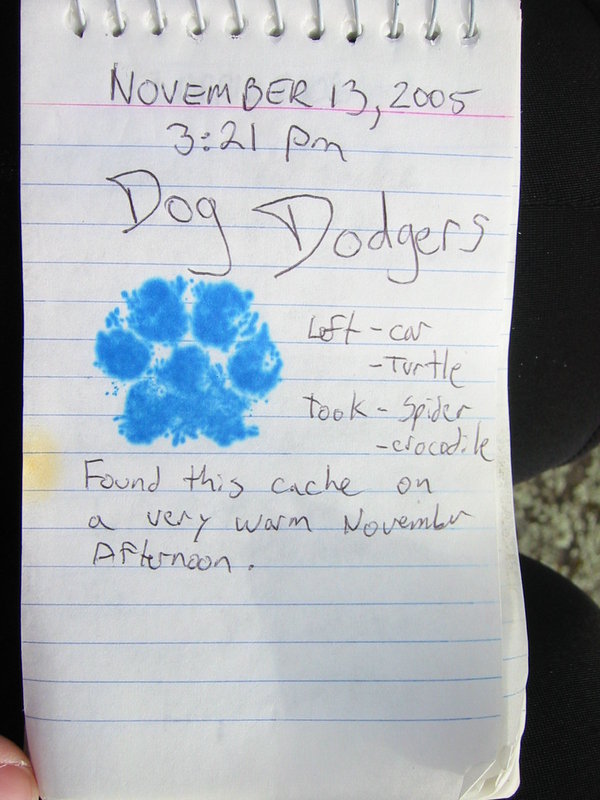 NOVEMBER 13, 2005
3:21 pm
Dog Dodgers
Left - car
- Turtle
Took - Spider
- crocodile
Found this cache on
a very warm November
Afternoon.